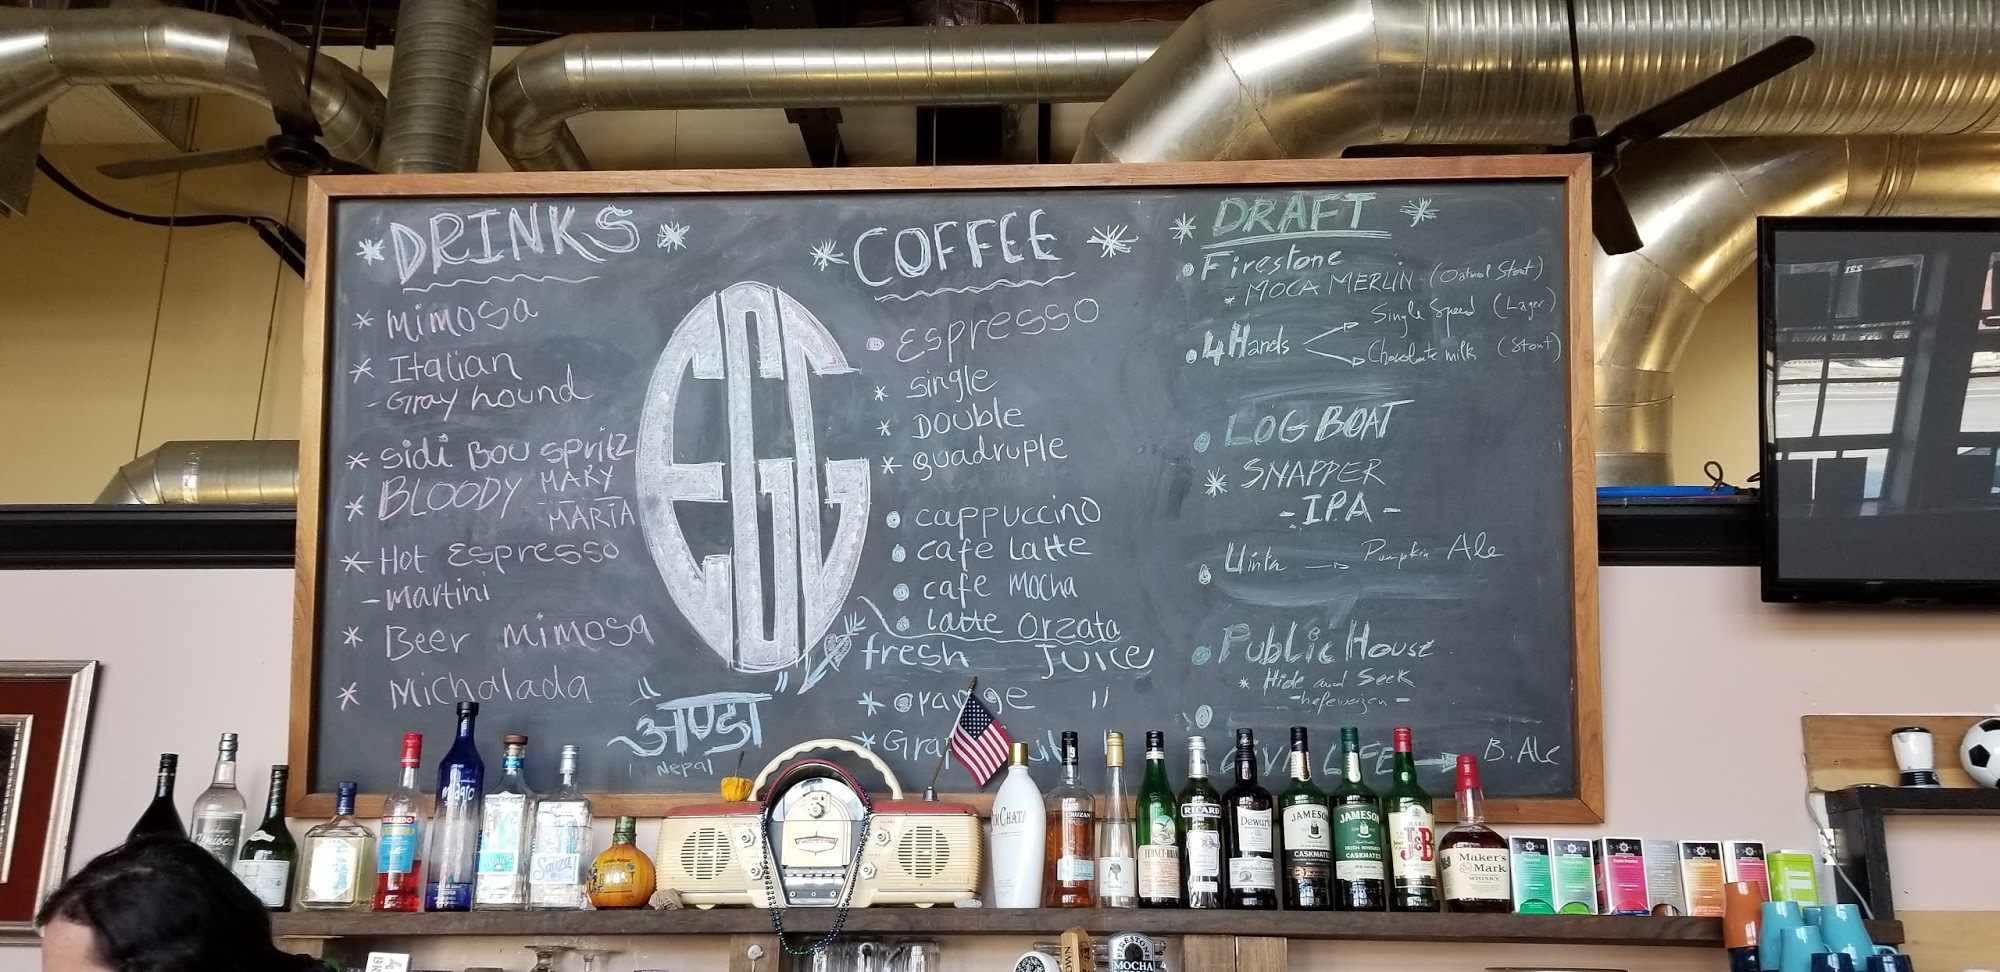 DRINKS
* mimosa
* Italian
- Gray hound
* Sidi Bou spritz
* BLOODY MARY
MARIA
* Hot Espresso
- martini
* Beer mimosa
* Michalada
EGG
" अण्डा "
Nepal
* COFFEE *
Espresso
* single
* Double
* quadruple
• cappuccino
• cafe latte
• cafe mocha
• latte orzata
fresh Juice
* orange "
* DRAFT *
• Firestone
* MOCA MERLIN - (Oatmal Stout)
• 4 Hands
Single Speed (Lager)
Chocolate milk (Stout)
• LOGBOAT
* SNAPPER
- IPA -
• Uinta → Pumpkin Ale
• Public House
* Hide and Seek
- hefeweizen -
→ B. Ale
milagro
Sauza
CRUZAN
RICARD
Dewar's
JAMESON
CASKMATES
JAMESON
IRISH WHISKEY
CASKMATES
RARE
J&B
Maker's
Mark
WHISKY
FIRESTONE
MOCHA